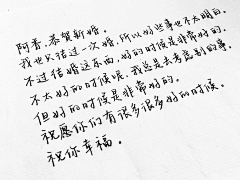 阿香，恭贺新婚。
我也只结过一次婚，所以好些事也不太明白。
不过结婚这东西，好的时候是非常好的。
不太好的时候呢，我总是去考虑别的事。
但好的时候是非常好的。
祝愿你们有很多很多好的时候。
祝你幸福。